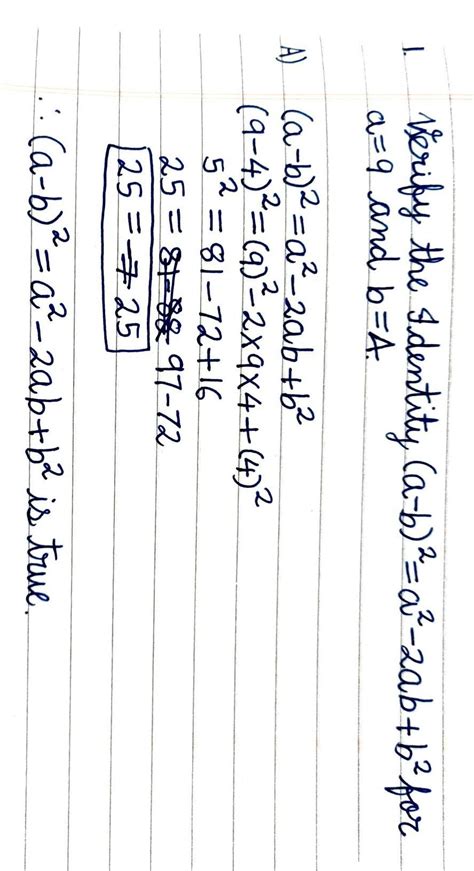 1. Verify the Identity (a-b)² = a² - 2ab + b² for
a = 9 and b = 4.
A) (a-b)² = a² - 2ab + b²
(9-4)² = (9)² - 2×9×4 + (4)²
5² = 81 - 72 + 16
25 = 81-88 97 - 72
25 = -7 25
∴ (a-b)² = a² - 2ab + b² is true.